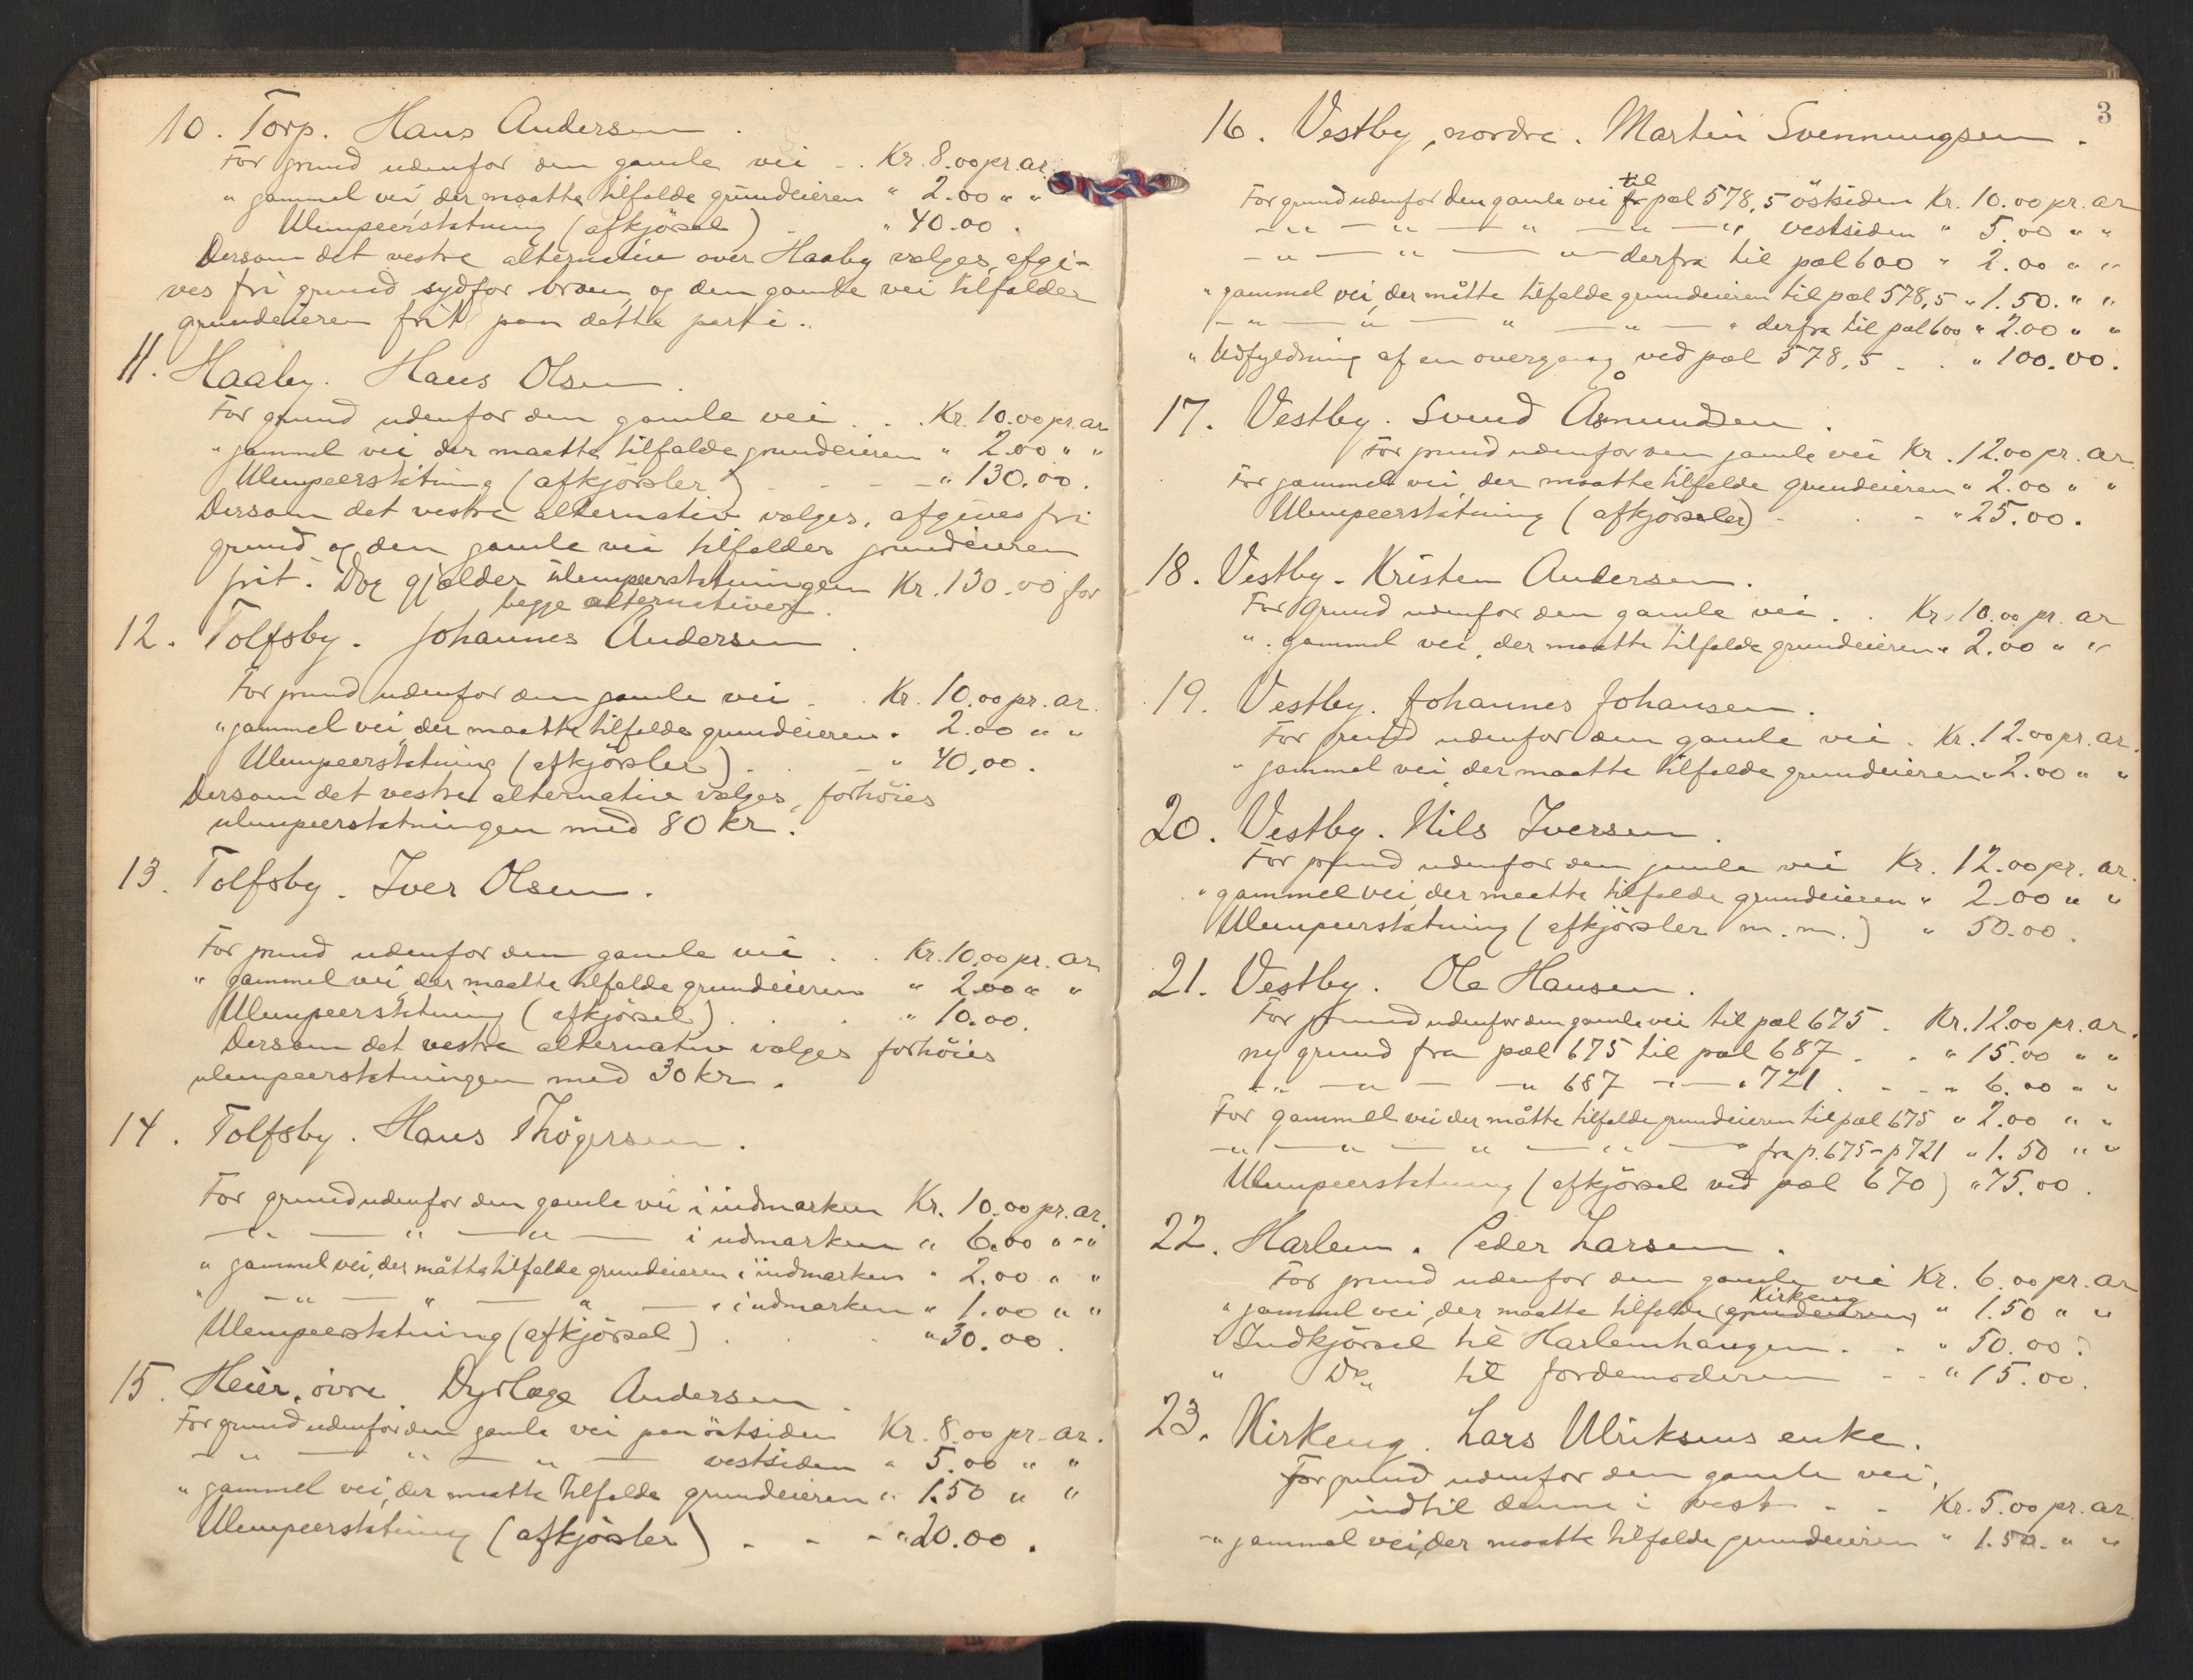 10. Torp. Hans Andersen.
For grund udenfor den gamle vei . . Kr. 8.00 pr. ar
" gammel vei, der maatte tilfalde grundeieren " 2.00 " "
Ulempeerstatning (afkjörsel) . " 40.00.
Dersom det vestre alternativ over Haaby vælges, afgi-
ves fri grund sydfor broen, og den gamle vei tilfalder
grundeieren frit paa dette parti.
11. Haaby. Hans Olsen.
For grund udenfor den gamle vei . . . Kr. 10.00 pr. ar
" gammel vei der maatte tilfalde grundeieren " 2.00 " "
Ulempeerstatning (afkjörsler) - - - " 130.00.
Dersom det vestre alternativ vælges, afgives fri
grund og den gamle vei tilfalder grundeieren
frit. Dog gjælder ulempeerstatningen Kr. 130.00 for
begge alternativer.
12. Tolfsby. Johannes Andersen.
For grund udenfor den gamle vei . . Kr. 10.00 pr. ar.
" gammel vei, der maatte tilfalde grundeieren " 2.00 " "
Ulempeerstatning (afkjörsler) . . - " 40.00.
Dersom det vestre alternativ vælges, forhöies
ulempeerstatningen med 80 kr.
13. Tolfsby. Iver Olsen.
For grund udenfor den gamle vei . . Kr. 10.00 pr. ar
" gammel vei, der maatte tilfalde grundeieren " 2.00 " "
Ulempeerstatning (afkjörsel) . . . " 10.00.
Dersom det vestre alternativ vælges forhöies
ulempeerstatningen med 30 kr.
14. Tolfsby. Hans Thögersen.
For grund udenfor den gamle vei i indmarken Kr. 10.00 pr. ar.
- " - " - " - i udmarken " 6.00 " "
" gammel vei, der måtte tilfalde grundeieren i indmarken " 2.00 " "
" - " - " - " - " i udmarken " 1.00 " "
Ulempeerstatning (afkjörsel) . . . " 30.00.
15. Heier, övre. Dyrlæge Andersen.
For grund udenfor den gamle vei paa östsiden Kr. 8.00 pr. ar.
- " - " - " - vestsiden " 5.00 " "
" gammel vei, der maatte tilfalde grundeieren " 1.50 " "
Ulempeerstatning (afkjörsler) . - - " 20.00.
3
16. Vestby, nordre. Martin Svenningsen.
For grund udenfor den gamle vei til pæl 578,5 östsiden Kr. 10.00 pr. ar
- " - " - " - " - " vestsiden " 5.00 " "
- " - " - " - derfra til pæl 600 " 2.00 " "
" gammel vei, der måtte tilfalde grundeieren til pæl 578,5 " 1.50. " "
- " - " - " - " - " derfra til pæl 600 " 2.00 " "
" Udfyldning af en overgang ved pæl 578,5 . . " 100.00.
17. Vestby. Svend Åsmundsen.
For grund udenfor den gamle vei Kr. 12.00 pr. ar
For gammel vei, der maatte tilfalde grundeieren " 2.00 " "
Ulempeerstatning (afkjörsler) - . - " 25.00.
18. Vestby. Kristen Andersen.
For grund udenfor den gamle vei . . Kr. 10.00 pr. ar
" gammel vei, der maatte tilfalde grundeieren " 2.00 " "
19. Vestby. Johannes Johansen.
For grund udenfor den gamle vei . Kr. 12.00 pr. ar.
" gammel vei, der maatte tilfalde grundeieren " 2.00 " "
20. Vestby. Nils Iversen.
For grund udenfor den gamle vei Kr. 12.00 pr. ar.
" gammel vei, der maatte tilfalde grundeieren " 2.00 " "
Ulempeerstatning (afkjörsler m.m.) " 50.00.
21. Vestby. Ole Hansen.
For grund udenfor den gamle vei til pæl 675 . Kr. 12.00 pr. ar.
ny grund fra pæl 675 til pæl 687 . . " 15.00 " "
- " - " - " 687 - " - " 721 . - - " 6.00 " "
For gammel vei der måtte tilfalde grundeieren til pæl 675 " 2.00 " "
- " - " - " - " - fra p. 675 - p 721 " 1.50 " "
Ulempeerstatning (afkjörsel ved pæl 670) " 75.00.
22. Harlem. Peder Larsen.
For grund udenfor den gamle vei Kr. 6.00 pr. ar
" gammel vei, der maatte tilfalde (grundeieren) Kirkeng " 1.50 " "
Indkjörsel til Harlemhaugen . . " 50.00.
" Do til Jordemoderen - - " 15.00.
23. Kirkeng. Lars Ulriksens enke.
For grund udenfor den gamle vei,
indtil denne i vest - - Kr. 5.00 pr. ar
" gammel vei, der maatte tilfalde grundeieren " 1.50. " "